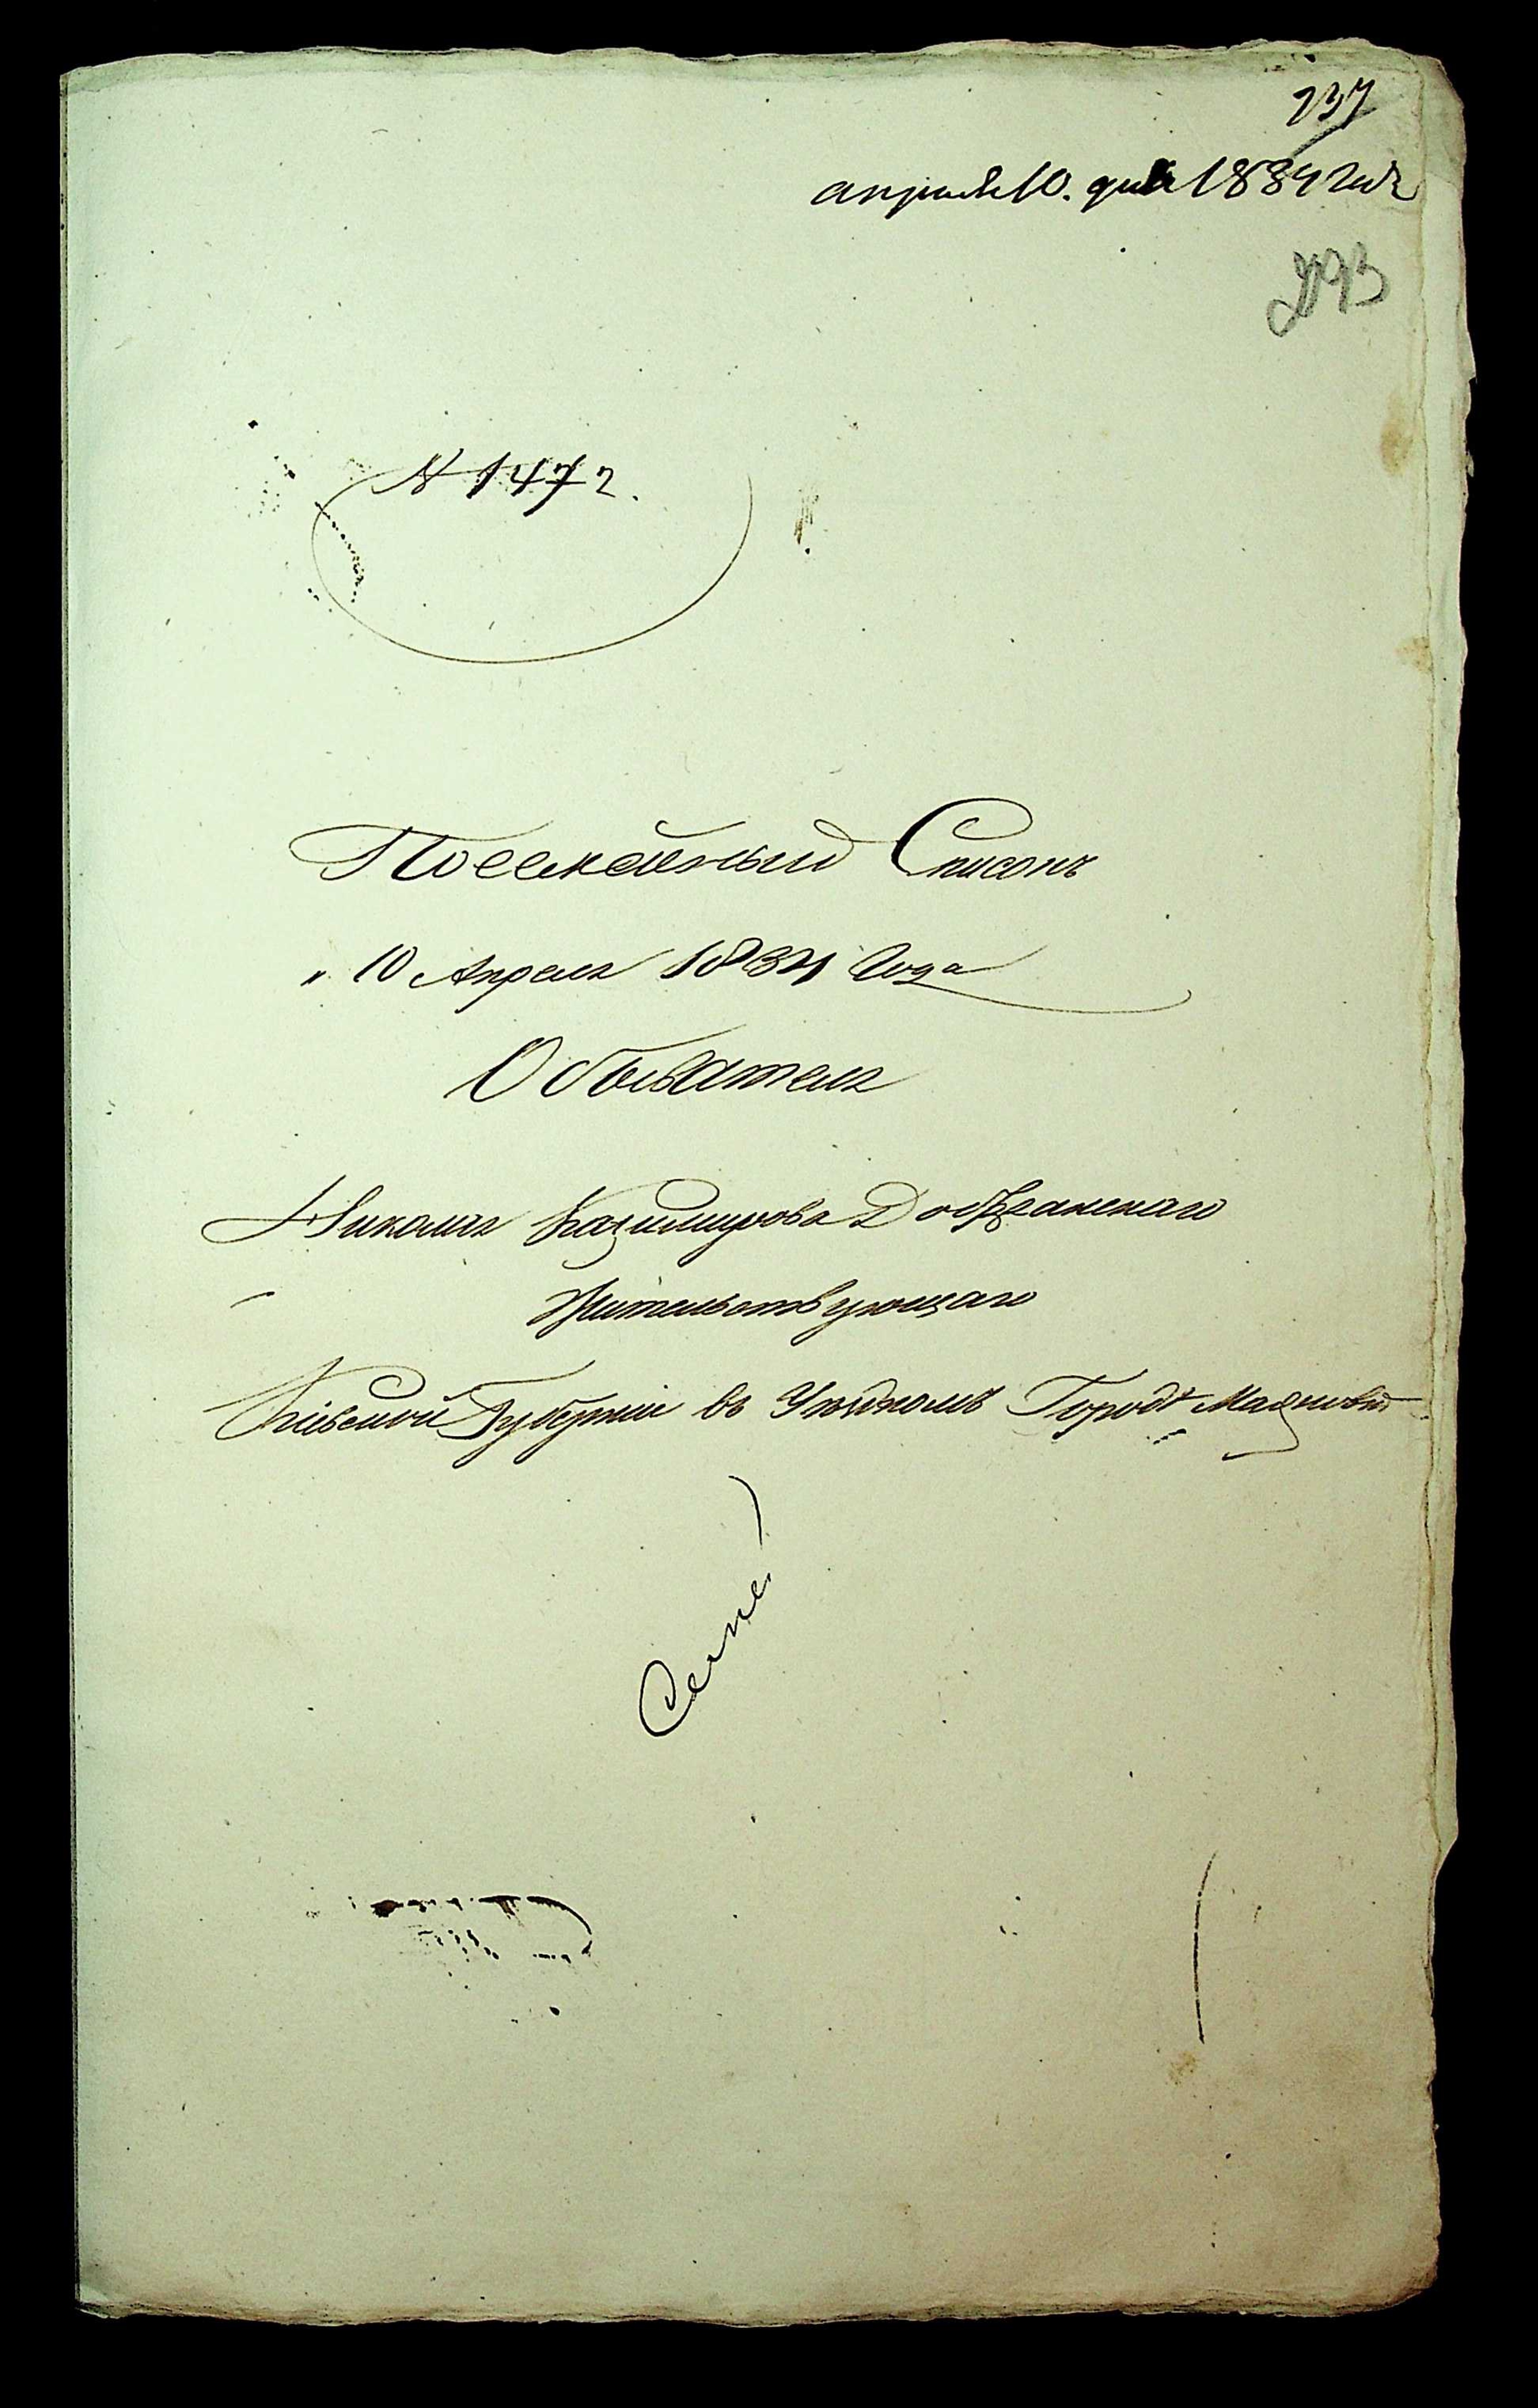 237
апреля 10. дня 1834 года
293
N 1472.
Посемейный Списокъ
" 10 Апреля 1834 Года
Обывателя
Николая Казимирова Добржанскаго
Жительствующаго
Кіевской Губерніи въ Уездномъ Городѣ Махновки